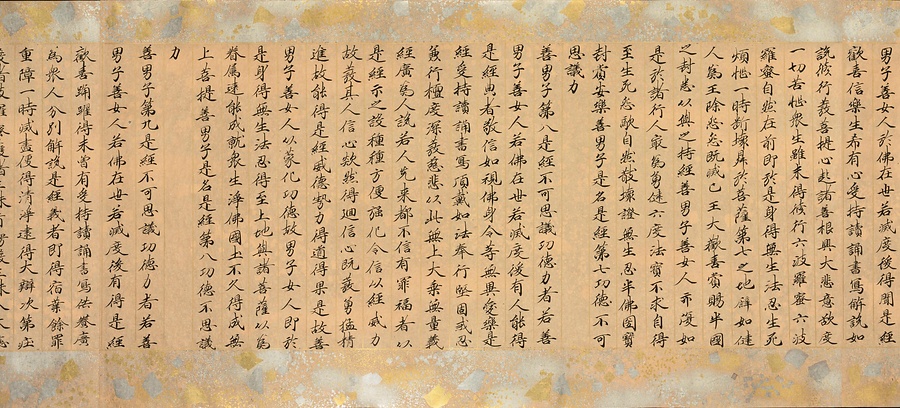 男子善女人於佛在世若滅度後得聞是經
歡喜信樂生希有心受持讀誦書寫解說如
說修行發菩提心起諸善根興大悲意欲度
一切苦惱衆生雖未得修行六波羅蜜六波
羅蜜自然在前即於是身得無生法忍生死
煩惱一時斷壞昇於菩薩第七之地譬如健
人爲王除怨怨既滅已王大歡喜賞賜半國
之封悉以與之持經善男子善女人亦復如
是於諸行人最爲勇健六度法寶不求自得
至生死怨敵自然散壞證無生忍半佛國寶
封賞安樂善男子是名是經第七功德不可
思議力
善男子第八是經不可思議功德力者若善
男子善女人若佛在世若滅度後有人能得
是經典者敬信如視佛身令等無異愛樂是
經受持讀誦書寫頂戴如法奉行堅固戒忍
兼行檀度深發慈悲以此無上大乘無量義
經廣爲人說若人先來都不信有罪福者以
是經示之設種種方便強化令信以經威力
故發其人信心欻然得迴信心既發勇猛精
進故能得是經威德勢力得道得果是故善
男子善女人以蒙化功德故男子女人即於
是身得無生法忍得至上地與諸菩薩以爲
眷屬速能成就衆生淨佛國土不久得成無
上菩提善男子是名是經第八功德不思議
力
善男子第九是經不可思議功德力者若善
男子善女人若佛在世若滅度後有得是經
歡喜踊躍得未曾有受持讀誦書寫供養廣
爲衆人分別解說是經義者即得宿業餘罪
重障一時滅盡便得清淨逮得大辯次第莊